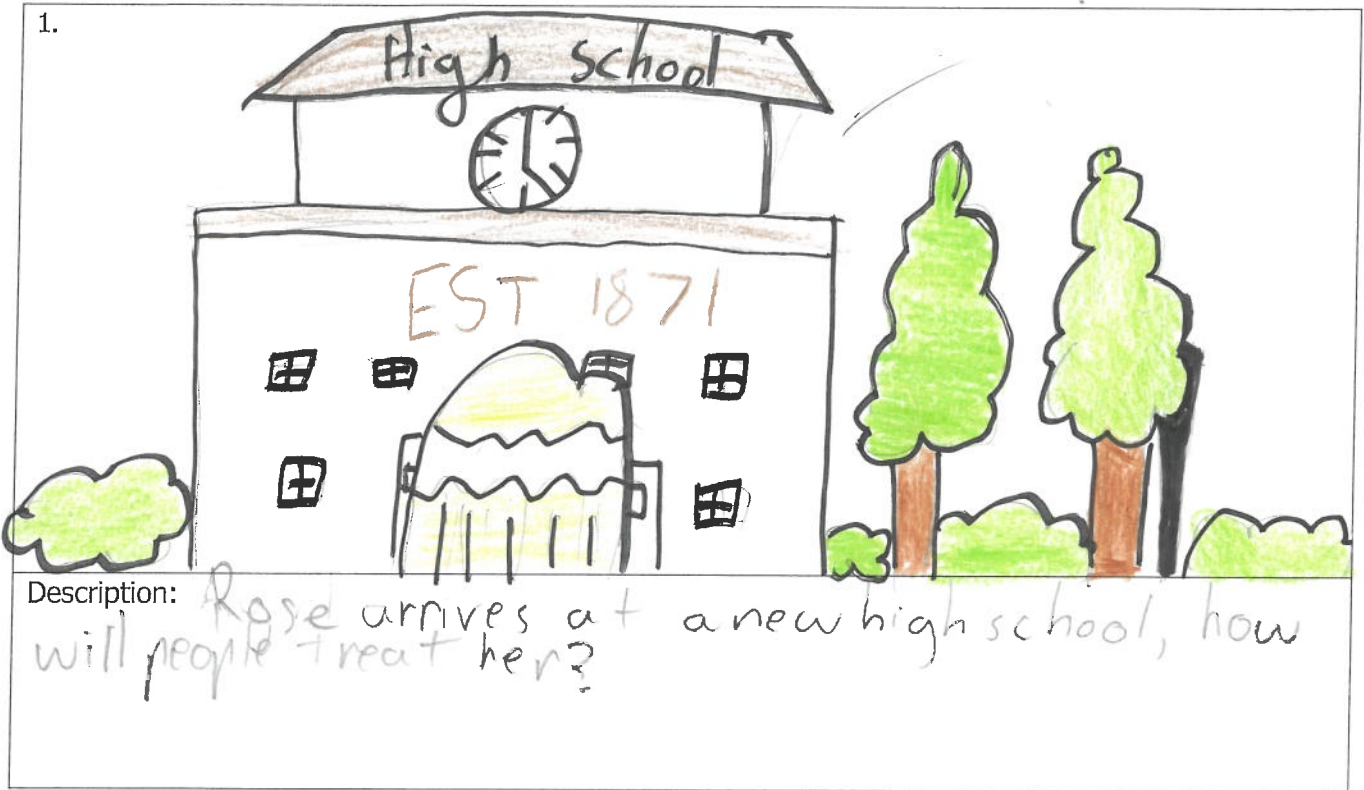 1.
High school
EST 1871
Description: Rose arrives at a new high school, how
will people treat her?